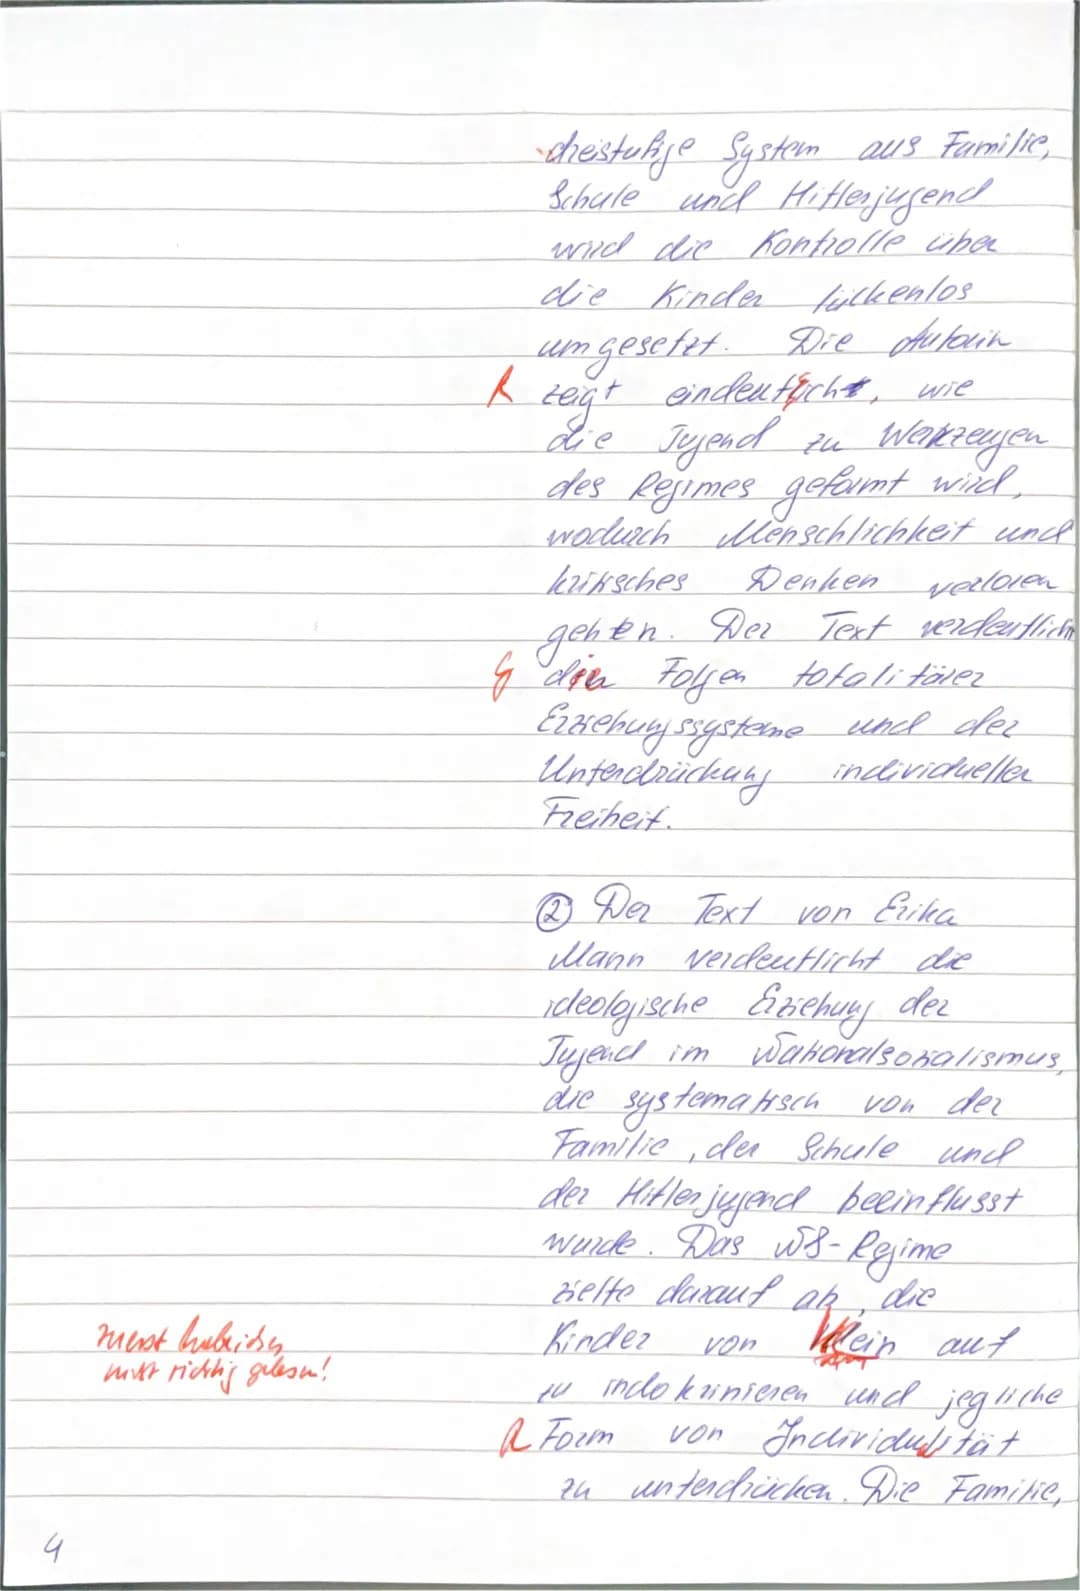 dreistufige System aus Familie,
Schule und Hitlerjugend
wird die Kontrolle über
die Kinder lückenlos
umgesetzt. Die Autorin
R zeigt eindeutlich, wie
die Jugend zu Werkzeugen
des Regimes geformt wird,
wodurch Menschlichkeit und
kritisches Denken verloren
gehen. Der Text verdeutlicht
G die Folgen totalitärer
Erziehungssysteme und der
Unterdrückung individueller
Freiheit.
② Der Text von Erika
Mann verdeutlicht die
ideologische Erziehung der
Jugend im Nationalsozialismus,
die systematisch von der
Familie, der Schule und
der Hitlerjugend beeinflusst
wurde. Das NS-Regime
zielte darauf ab, die
Kinder von klein auf
zuerst habe ich es
nicht richtig gelesen!
zu indoktrinieren und jegliche
R Form von Individualität
zu unterdrücken. Die Familie,
4